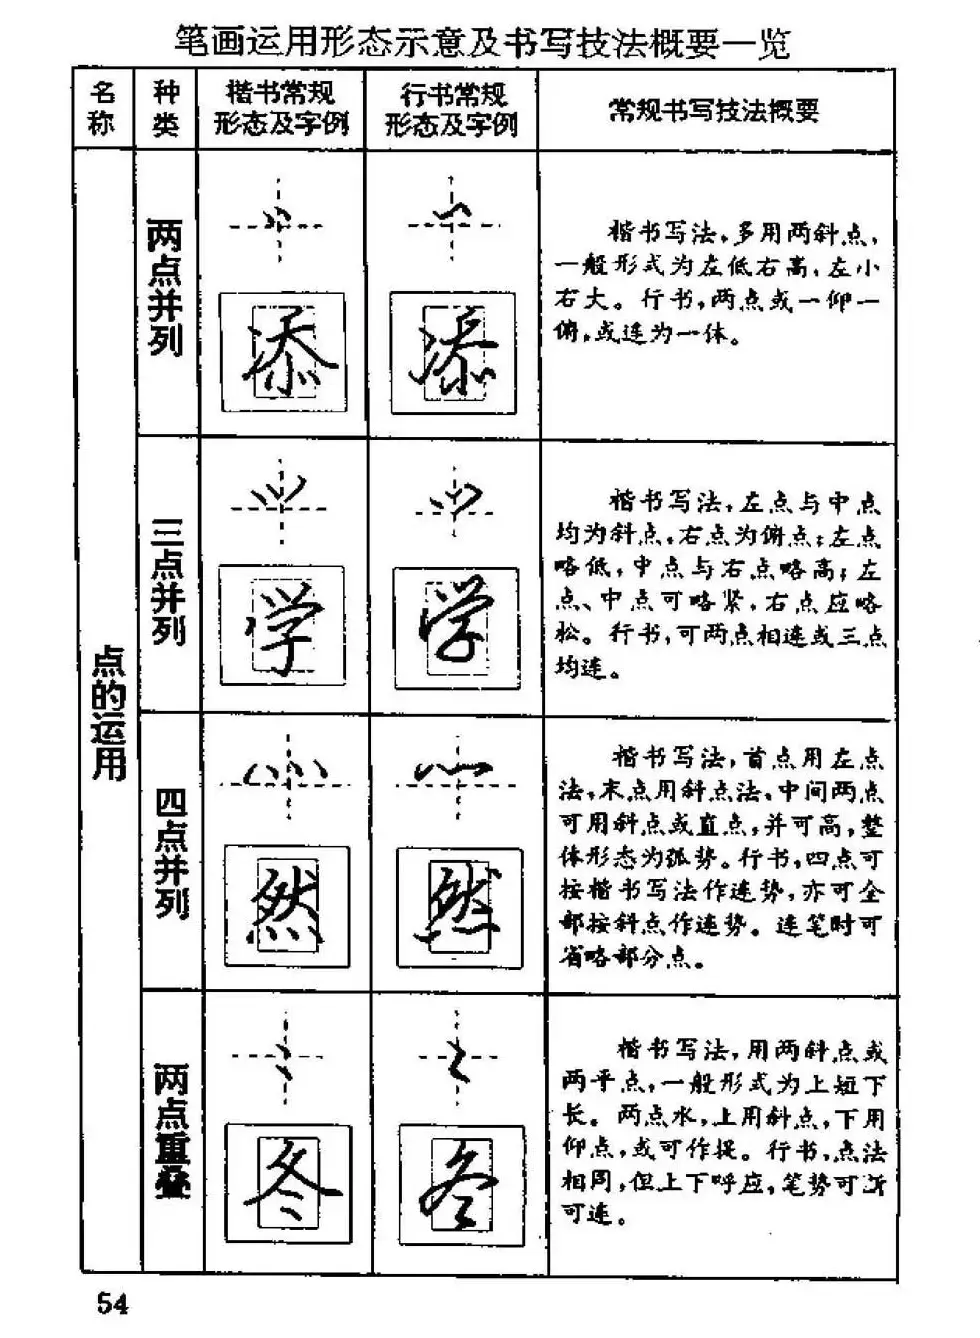 笔画运用形态示意及书写技法概要一览
名称
种类
楷书常规
形态及字例
行书常规
形态及字例
常规书写技法概要
点的运用
两点并列
添
添
楷书写法,多用两斜点,
一般形式为左低右高,左小
右大。行书,两点或一仰一
俯,或连为一体。
三点并列
学
学
楷书写法,左点与中点
均为斜点,右点为俯点;左点
略低,中点与右点略高;左
点、中点可略紧,右点应略
松。行书,可两点相连或三点
均连。
四点并列
然
然
楷书写法,首点用左点
法,末点用斜点法,中间两点
可用斜点或直点,并可高,整
体形态为弧势。行书,四点可
按楷书写法作连势,亦可全
部按斜点作连势。连笔时可
省略部分点。
两点重叠
冬
冬
楷书写法,用两斜点或
两平点,一般形式为上短下
长。两点水,上用斜点,下用
仰点,或可作提。行书,点法
相同,但上下呼应,笔势可断
可连。
54